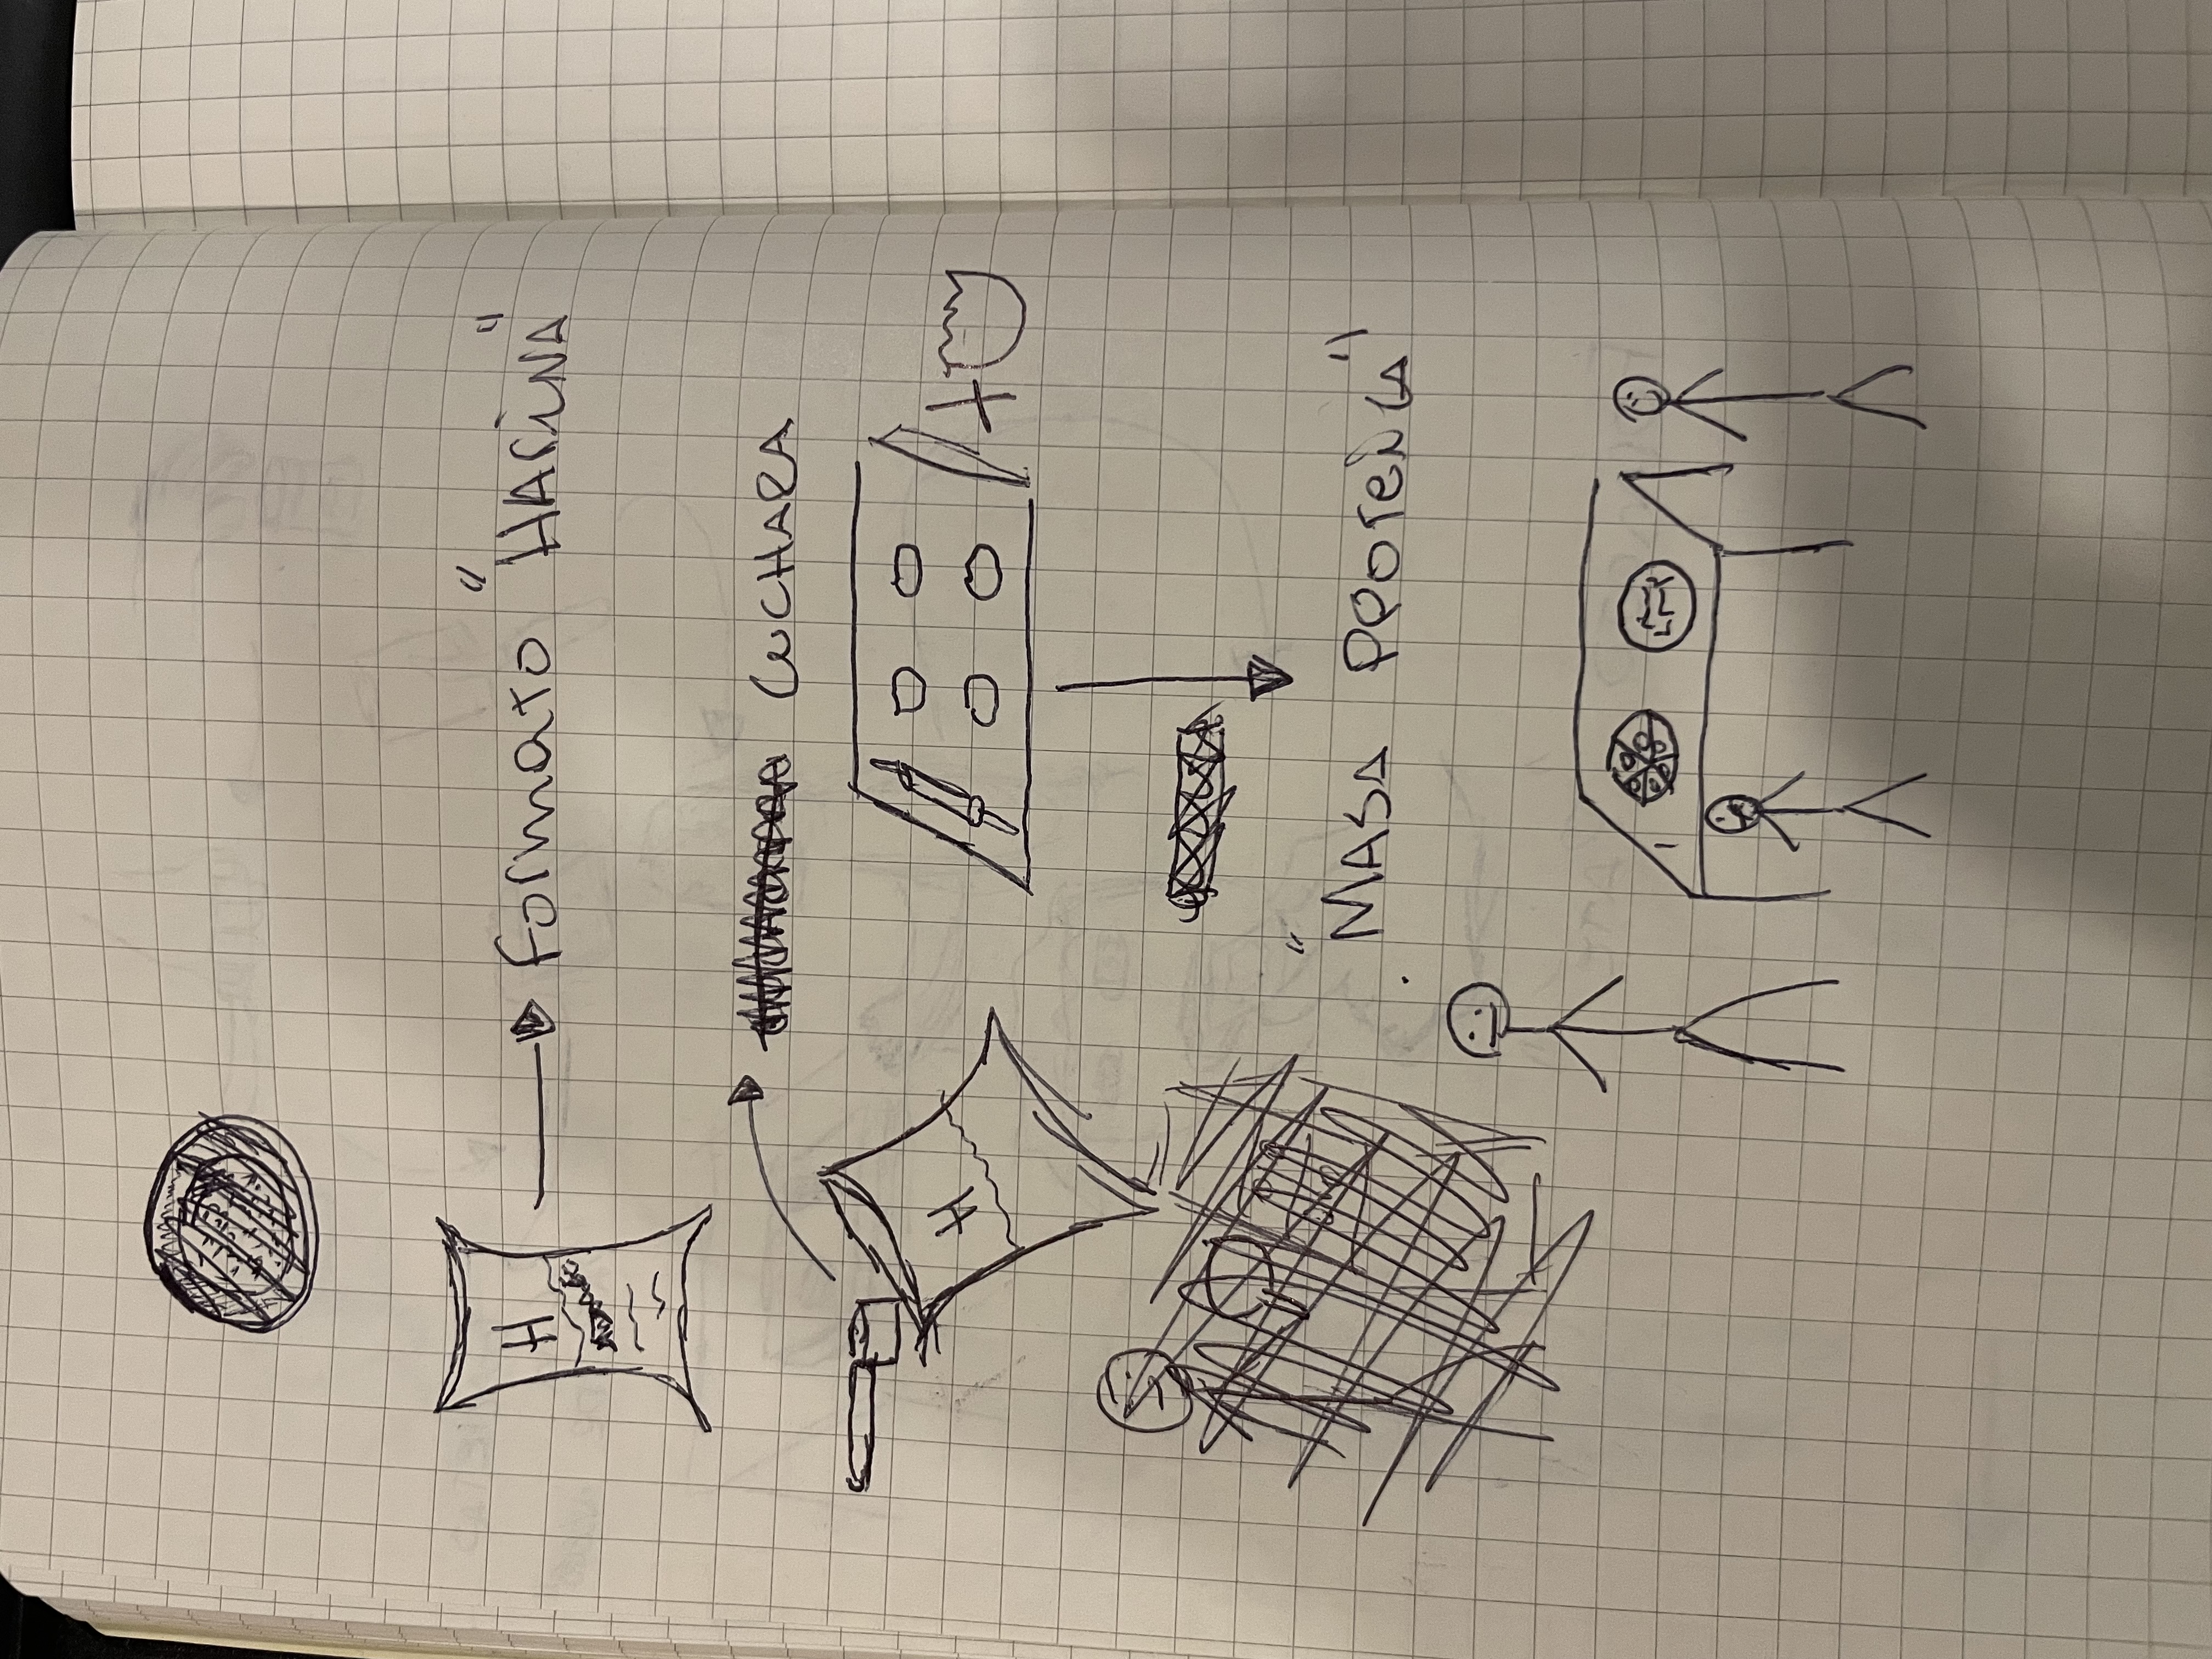 H
Formato "HARINA"
CUCHARA
H
+
"MASA PROTEICA"